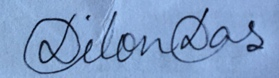 Dilon Das